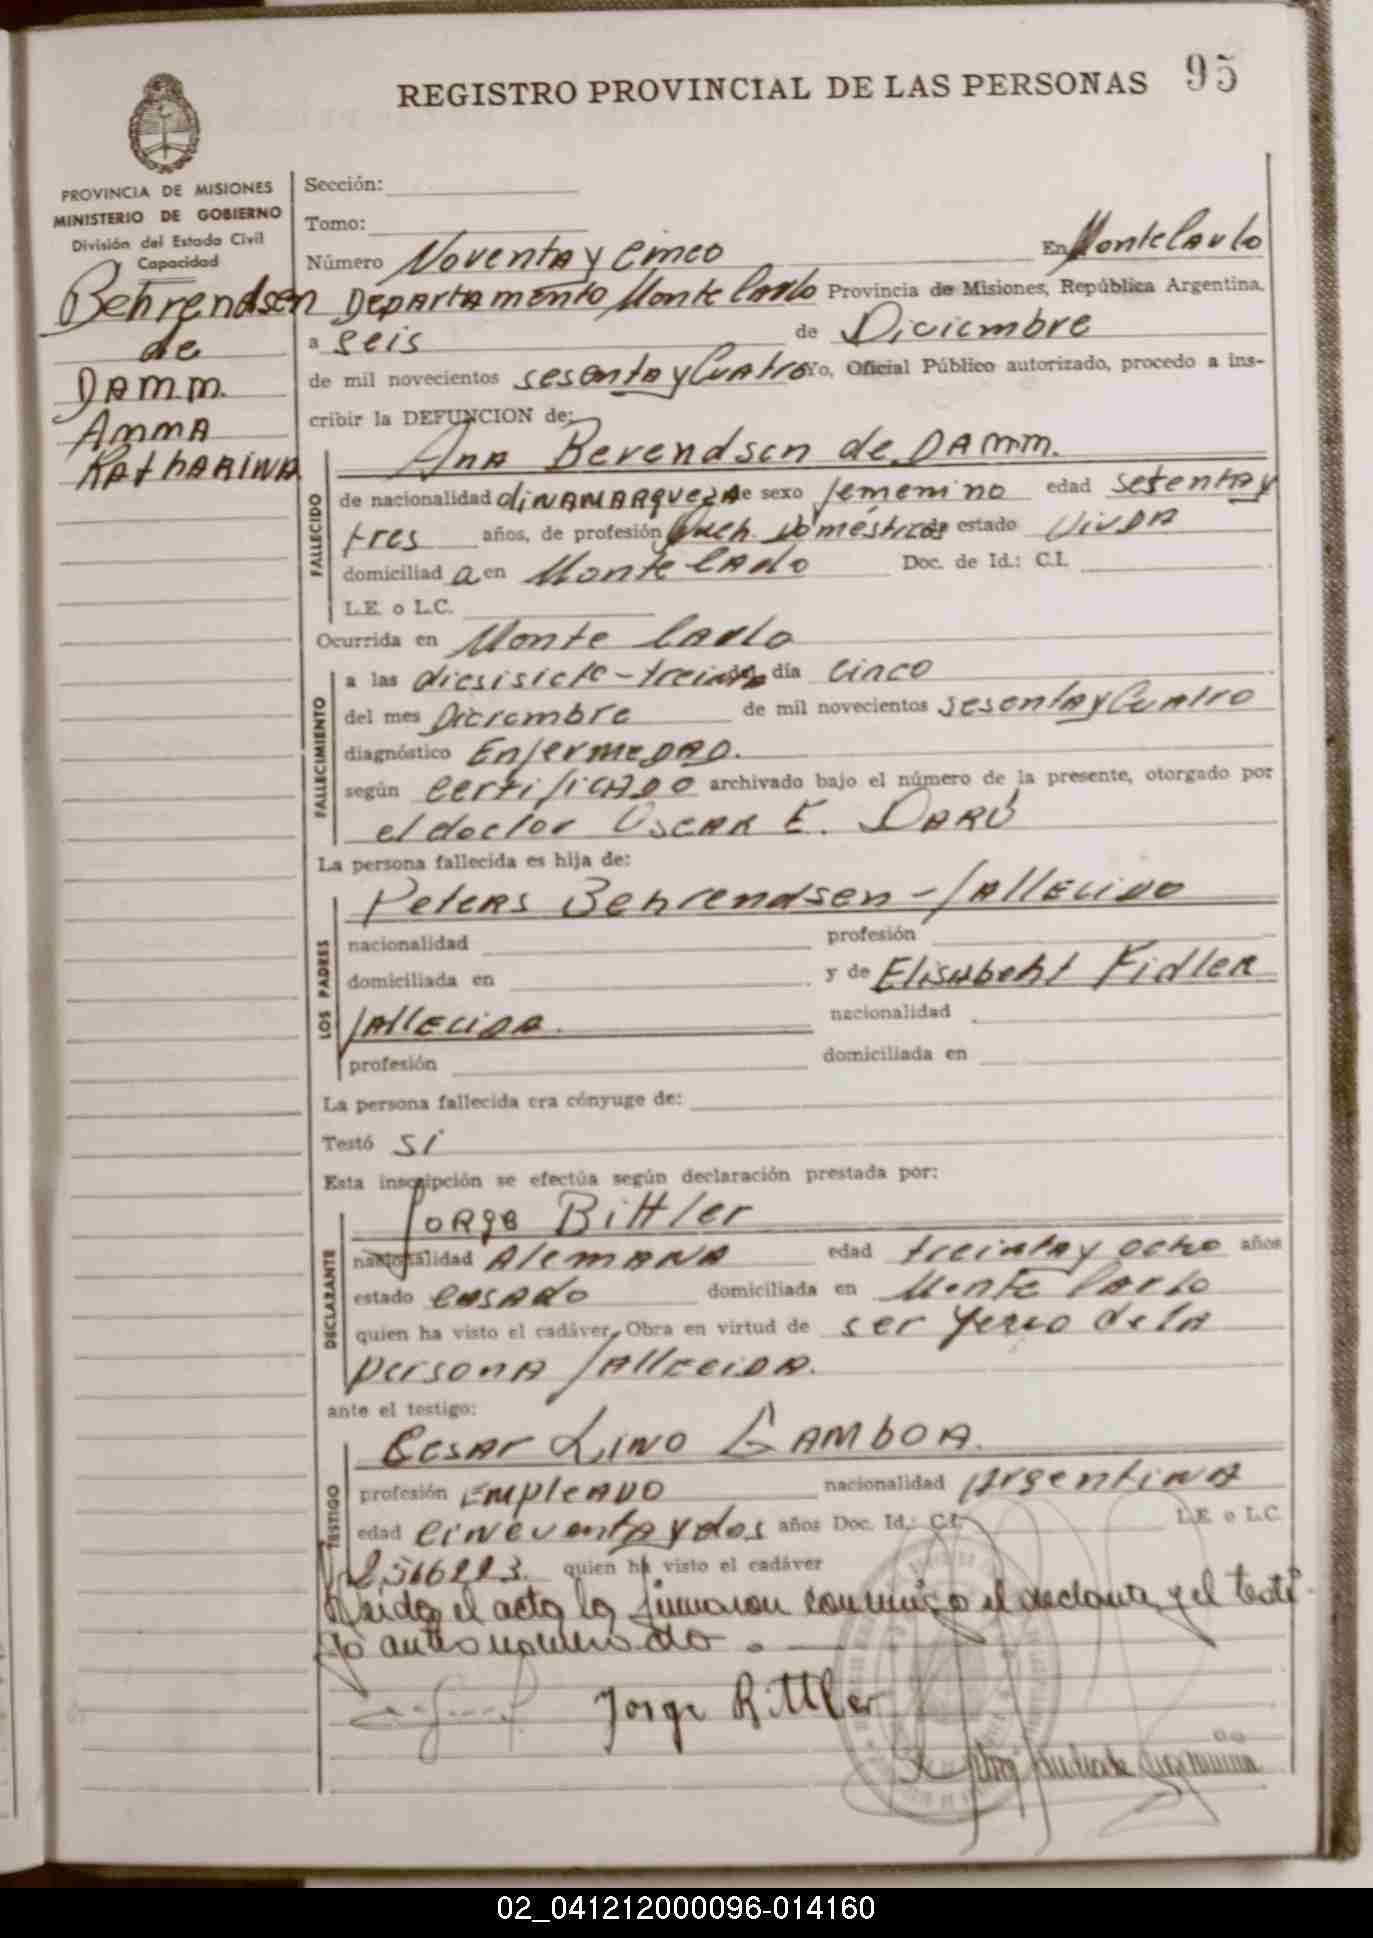 REGISTRO PROVINCIAL DE LAS PERSONAS 95
PROVINCIA DE MISIONES
MINISTERIO DE GOBIERNO
División del Estado Civil
y Capacidad
Behrendsen
de
DAMM.
AnnA
KAthARINA
Sección:
Tomo:
Número Noventa y Cinco En Monte Carlo
Departamento Monte Carlo Provincia de Misiones, República Argentina,
a seis de Diciembre
de mil novecientos sesenta y Cuatro Yo, Oficial Público autorizado, procedo a ins-
cribir la DEFUNCION de:
Ana Berendsen de DAmm.
FALLECIDO
de nacionalidad dinamarqueza de sexo femenino edad setenta y
tres años, de profesión Queh. Domésticos de estado Viuda
domiciliad a en Monte Carlo Doc. de Id.: C.I.
L.E. o L.C.
Ocurrida en Monte Carlo
FALLECIMIENTO
a las diesisiete-treinta del día Cinco
del mes Diciembre de mil novecientos sesenta y Cuatro
diagnóstico Enfermedad.
según Certificado archivado bajo el número de la presente, otorgado por
el doctor Oscar E. Darú
La persona fallecida es hija de:
LOS PADRES
Peters Behrendsen - fallecido
nacionalidad profesión
domiciliada en y de Elisabeht Fidler
fallecida. nacionalidad
profesión domiciliada en
La persona fallecida era cónyuge de:
Testó si
Esta inscripción se efectúa según declaración prestada por:
DECLARANTE
Jorge Bittler
nacionalidad Alemana edad treinta y ocho años
estado casado domiciliada en Monte Carlo
quien ha visto el cadáver, Obra en virtud de ser yerno de la
persona fallecida.
ante el testigo:
TESTIGO
Cesar Lino Gamboa.
profesión Empleado nacionalidad Argentina
edad cincuenta y dos años Doc. Id.: C.I. L.E. o L.C.
quien ha visto el cadáver
el acto la firmaron conmigo el declarante y el testi-
go antes nombrado.
Jorge Bittler
02_041212000096-014160